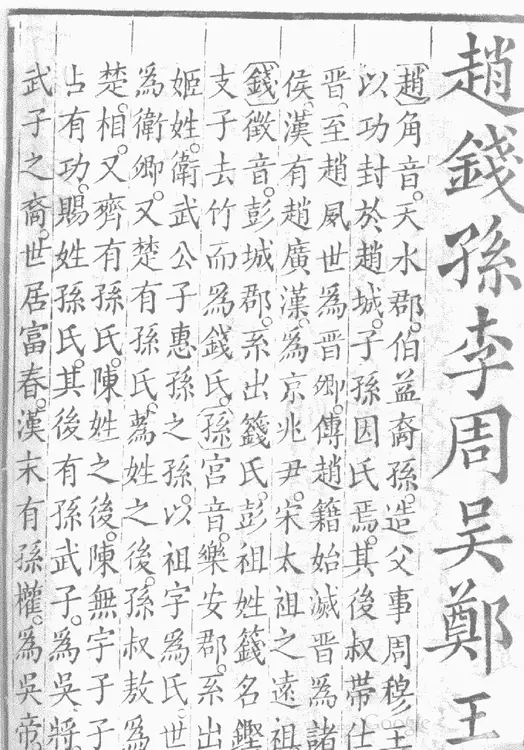 趙錢孫李周吳鄭王
趙角音。天水郡。伯益裔孫。造父事周穆王
以功封於趙城。子孫因氏焉。其後叔帶仕
晉。至趙夙世為晉卿。傳趙籍始滅晉為諸
侯。漢有趙廣漢。為京兆尹。宋太祖之遠祖
錢徵音。彭城郡。系出籛氏。彭祖姓籛名鏗
支子去竹而為錢氏。孫宮音。樂安郡。系出
姬姓。衛武公子惠孫之孫。以祖字為氏。世
為衛卿。又楚有孫氏。蒍姓之後。孫叔敖為
楚相。又齊有孫氏。陳姓之後。陳無宇子子
占有功。賜姓孫氏。其後有孫武子。為吳將。
武子之裔。世居富春。漢末有孫權。為吳帝。
Google